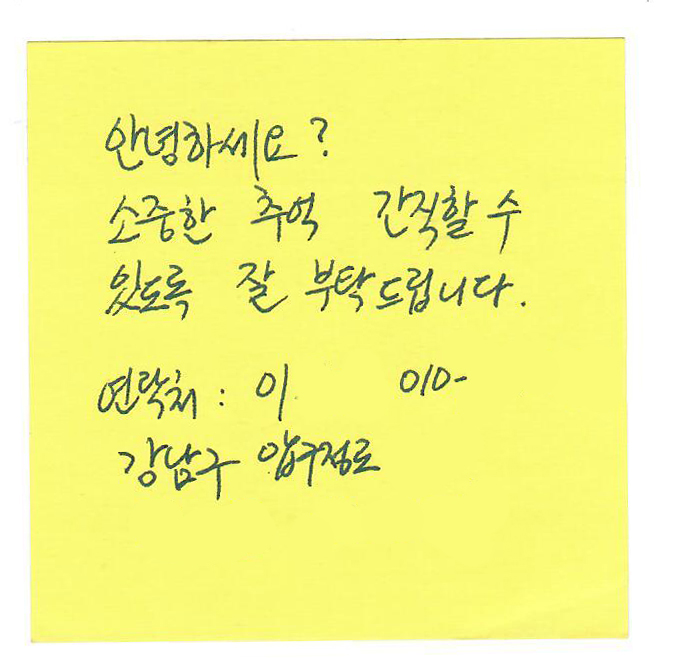 안녕하세요?
소중한 추억 간직할 수
있도록 잘 부탁드립니다.
연락처 : 이 010-
강남구 압구정로